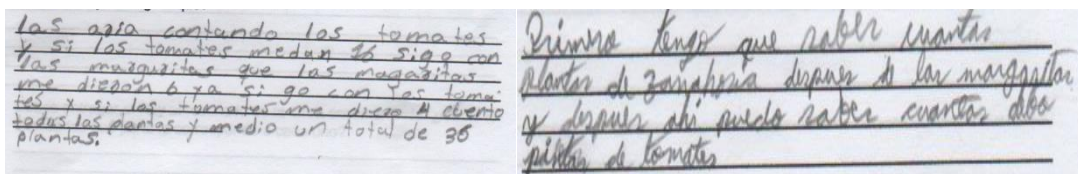 las aria contando los tomates
y si los tomates medan 16 sigo con
las marguritas que las magaritas
me dieron 6 ya si go con los toma-
tes y si los tomates me diero 4 cuento
todas las plantas y medio un total de 36
plantas.
Primero tengo que saber cuantas
plantas de zanahoria despues de las margaritas
y despues ahi puedo saber cuantas debo
pintar de tomates